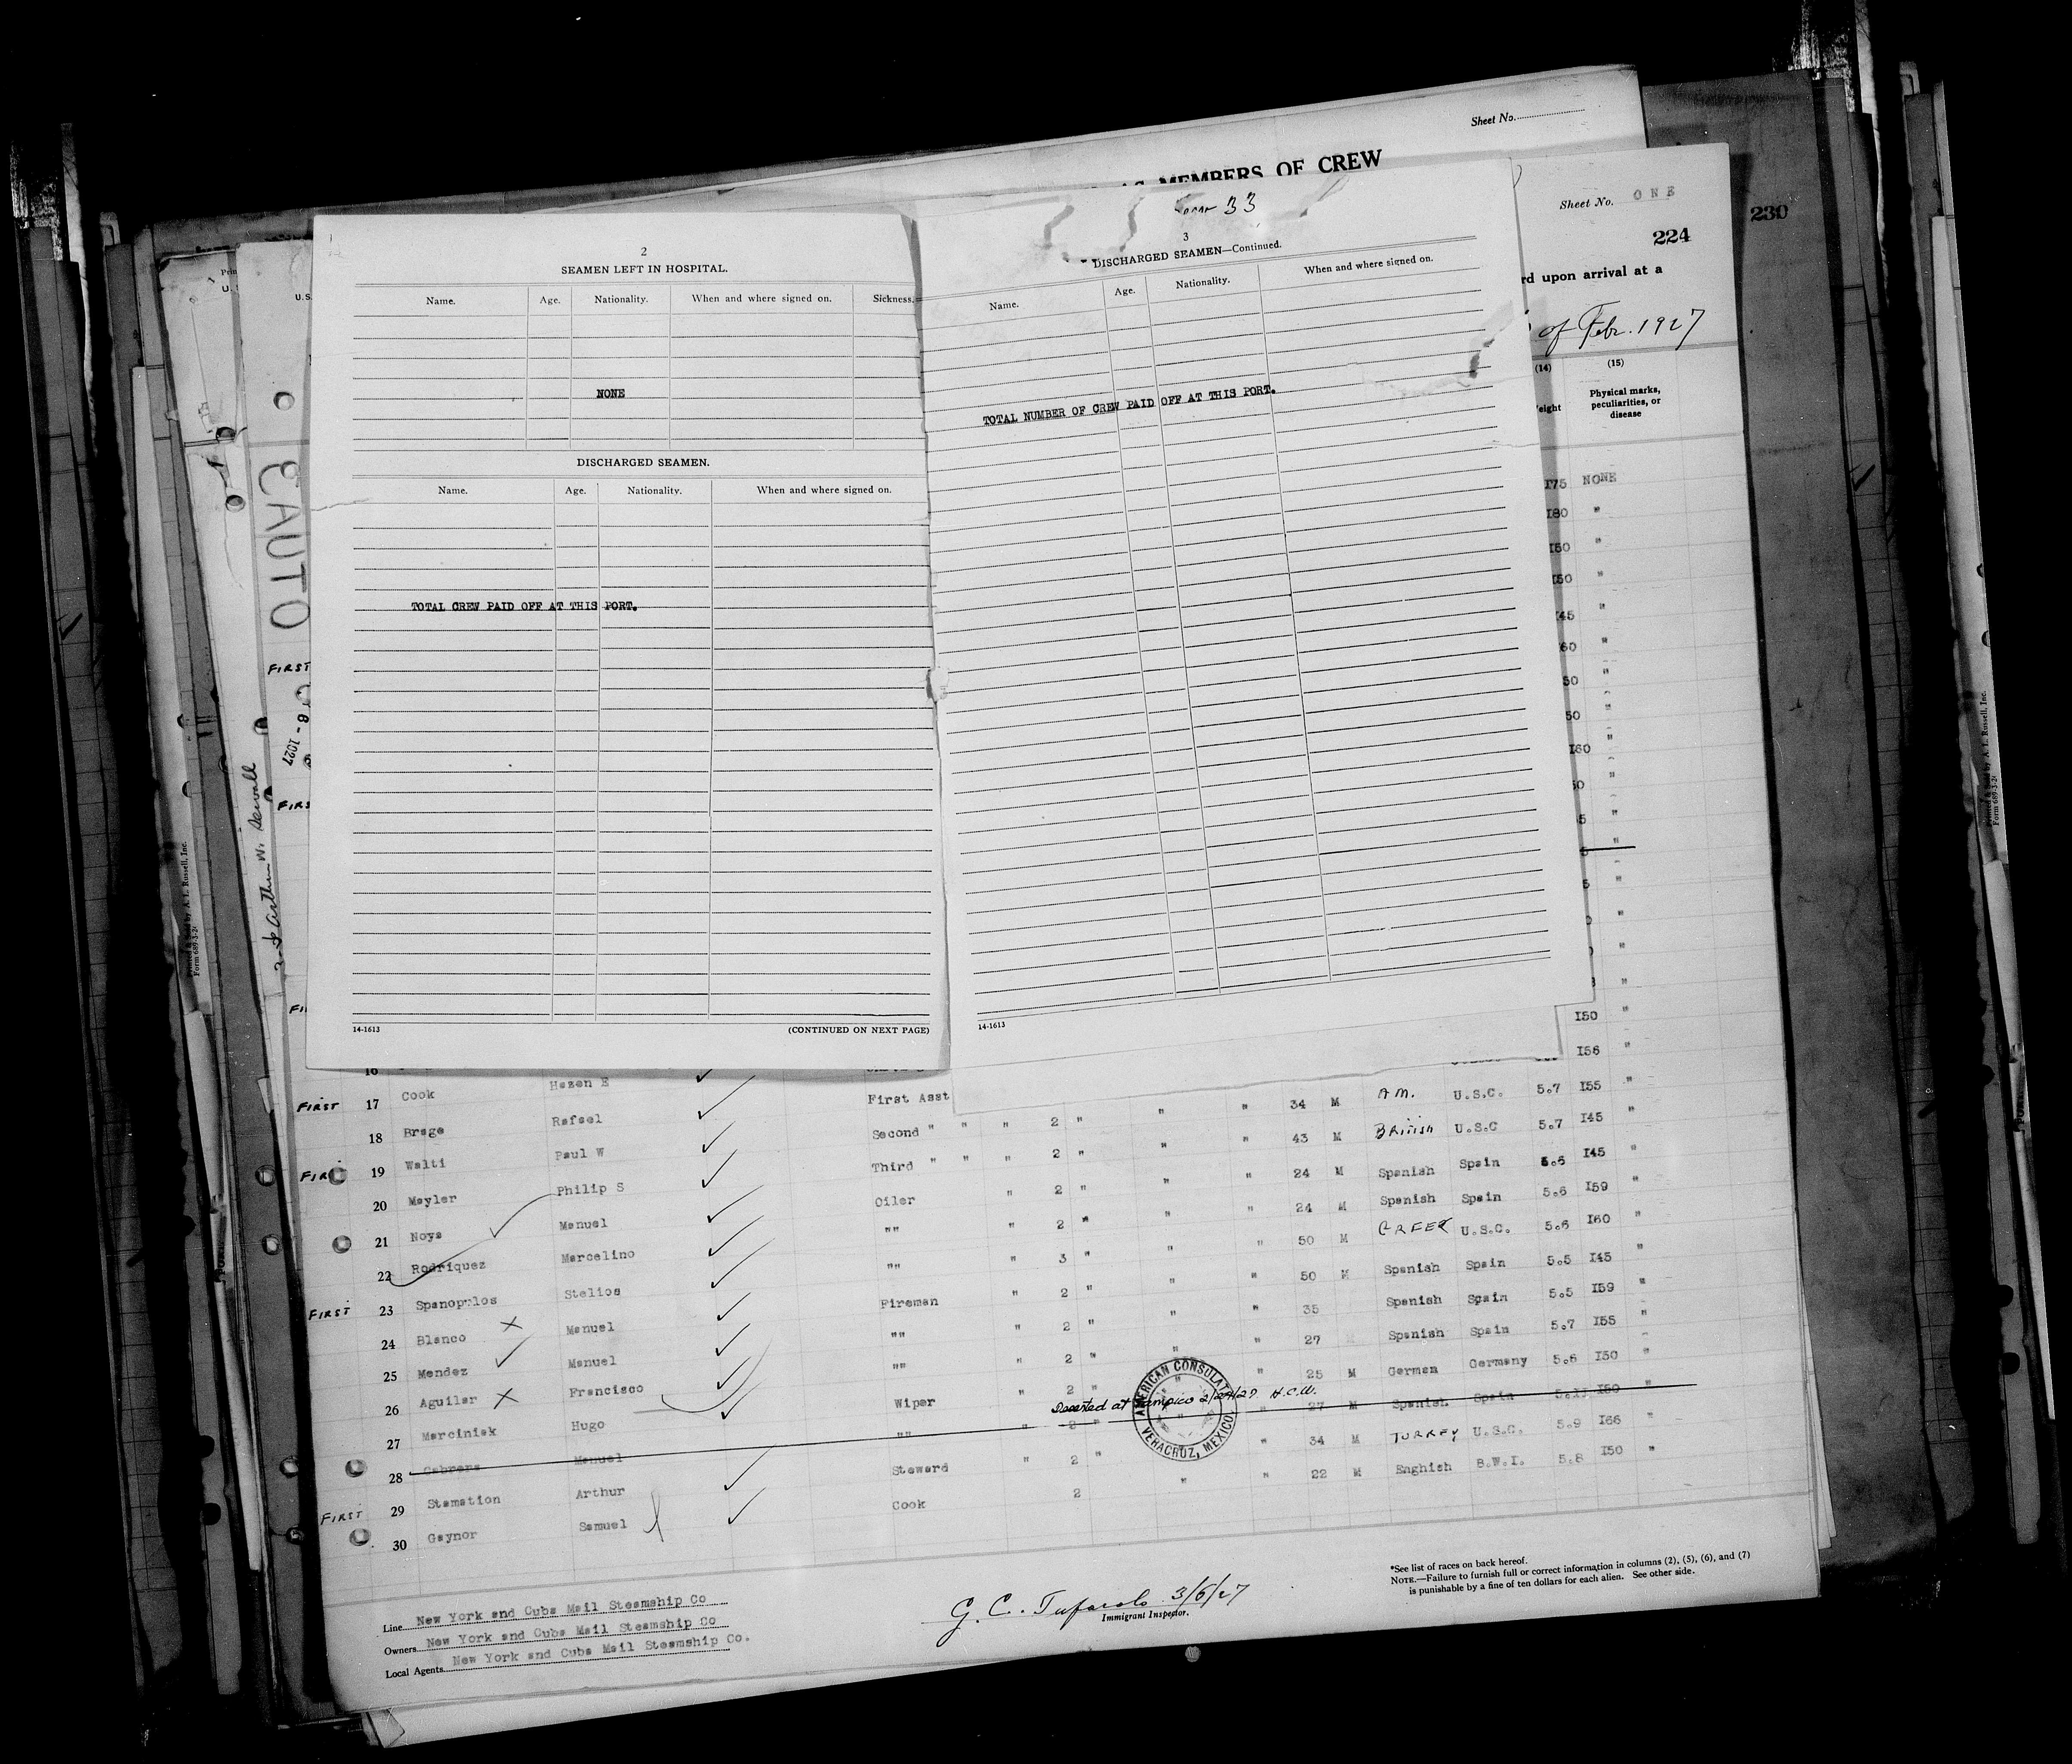 Sheet No.
AS MEMBERS OF CREW
Sheet No. ONE
230
224
rd upon arrival at a
of Febr. 1927
(14)
(15)
eight
Physical marks, peculiarities, or disease
33
2
SEAMEN LEFT IN HOSPITAL.
Name. Age. Nationality. When and where signed on. Sickness.
NONE
DISCHARGED SEAMEN.
Name. Age. Nationality. When and where signed on.
TOTAL CREW PAID OFF AT THIS PORT.
14-1613
(CONTINUED ON NEXT PAGE)
3
DISCHARGED SEAMEN—Continued.
Name. Age. Nationality. When and where signed on.
TOTAL NUMBER OF CREW PAID OFF AT THIS PORT.
14-1613
175 NONE
180 "
150 "
150 "
145 "
60 "
50 "
50 "
160 "
50 "
150 "
156 "
EAUTO
6 - 1927
Arthur W. Sewall
Printed & Sold by A. L. Russell, Inc.
Form 689-3-24
Printed & Sold by A. L. Russell, Inc.
Form 689-3-24
FIRST
FIRS
FI
16
FIRST 17 Cook Hazen E First Asst
18 Braga Rafael Second " " " 2 " " " 34 M AM. U.S.C. 5.7 155 "
FIRST 19 Walti Paul W Third " " " 2 " " " 43 M British U.S.C 5.7 145 "
20 Mayler Philip S Oiler " 2 " " " 24 M Spanish Spain 5.6 145 "
21 Noya Manuel "" " 2 " " " 24 M Spanish Spain 5.6 159 "
22 Rodriquez Marcelino "" " 3 " " " 50 M GREEK U.S.C. 5.6 160 "
FIRST 23 Spanopulos Stelios Fireman " 2 " " " 50 M Spanish Spain 5.5 145 "
24 Blanco Manuel "" " 2 " " " 35 Spanish Spain 5.5 159 "
25 Mendez Manuel "" " 2 " " " 27 Spanish Spain 5.7 155 "
26 Aguilar Francisco Wiper " 2 " " " 25 M German Germany 5.6 150 "
27 Marciniak Hugo "" " 2 " " 27 M Spanish Spain 5.11 150 "
Deserted at Tampico 2/24/27. H.C.W.
AMERICAN CONSULATE
VERACRUZ, MEXICO
28 Cabrera Manuel Steward " 2 " " 34 M TURKEY U.S.C. 5.9 166 "
FIRST 29 Stamation Arthur Cook 2 " " 22 M Enghish B.W.I. 5.8 150 "
30 Gaynor Samuel
*See list of races on back hereof.
NOTE.—Failure to furnish full or correct information in columns (2), (5), (6), and (7)
is punishable by a fine of ten dollars for each alien. See other side.
G. C. Tufarolo 3/6/27
Immigrant Inspector.
Line New York and Cuba Mail Steamship Co
Owners New York and Cuba Mail Steamship Co
Local Agents New York and Cuba Mail Steamship Co.